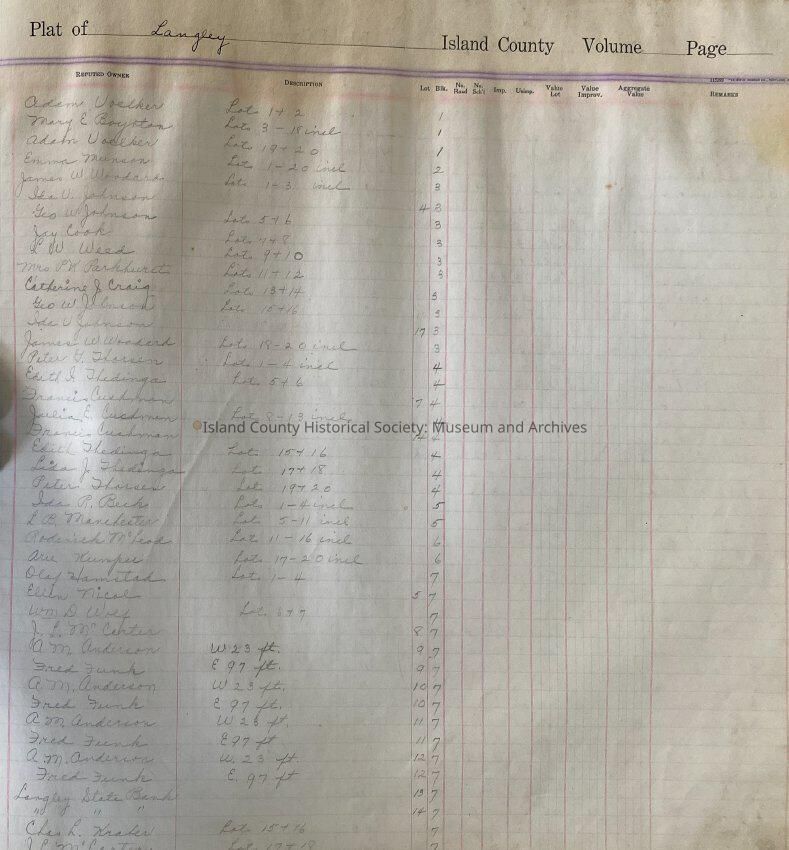 Plat of Langley Island County Volume Page
REPUTED OWNER DESCRIPTION Lot Blk. No. Road No. Sch'l Imp. Unimp. Value Lot Value Improv. Aggregate Value REMARKS
Adam Voelker Lots 1 + 2 1
Mary E Boynton Lots 3 - 18 incl 1
Adam Voelker Lots 19 + 20 1
Emma Munson Lots 1 - 20 incl 2
James W. Woodard Lots 1 - 3 incl 3
Ida V. Johnson 4 3
Geo W Johnson Lots 5 + 6 3
Jay Cook Lots 7 + 8 3
L W. Weed Lots 9 + 10 3
Mrs P.K Parkhurst Lots 11 + 12 3
Catherine J Craig Lots 13 + 14 3
Geo W Johnson Lots 15 + 16 3
Ida V Johnson 17 3
James W. Woodard Lots 18 - 20 incl 3
Peter G. Thorsen Lots 1 - 4 incl 4
Edith I Thedinga Lots 5 + 6 4
Francis Cushman 7 4
Julia E. Cushman Lots 8 - 13 incl 4
Francis Cushman 14 4
Island County Historical Society: Museum and Archives
Edith Thedinga Lots 15 + 16 4
Lida J. Thedinga Lots 17 + 18 4
Peter Thorsen Lots 19 + 20 4
Ida R. Beck Lots 1 - 4 incl 5
L B. Manchester Lots 5 - 11 incl 5
Roderick McLeod Lots 11 - 16 incl 6
Arie Kumper Lots 17 - 20 incl 6
Olaf Hamstad Lots 1 - 4 7
Ellen Nicol 5 7
Wm D Wolf Lots 6 + 7 7
J. L. McCarter 8 7
A M. Anderson W 23 ft. 9 7
Fred Funk E 97 ft. 9 7
A M. Anderson W 23 ft. 10 7
Fred Funk E 97 ft. 10 7
A M Anderson W 23 ft. 11 7
Fred Funk E 97 ft 11 7
A M. Anderson W. 23 ft. 12 7
Fred Funk E. 97 ft 12 7
Langley State Bank 13 7
" " " 14 7
Chas L. Kraber Lots 15 + 16 7
J L McCarter Lots 17 + 18 7